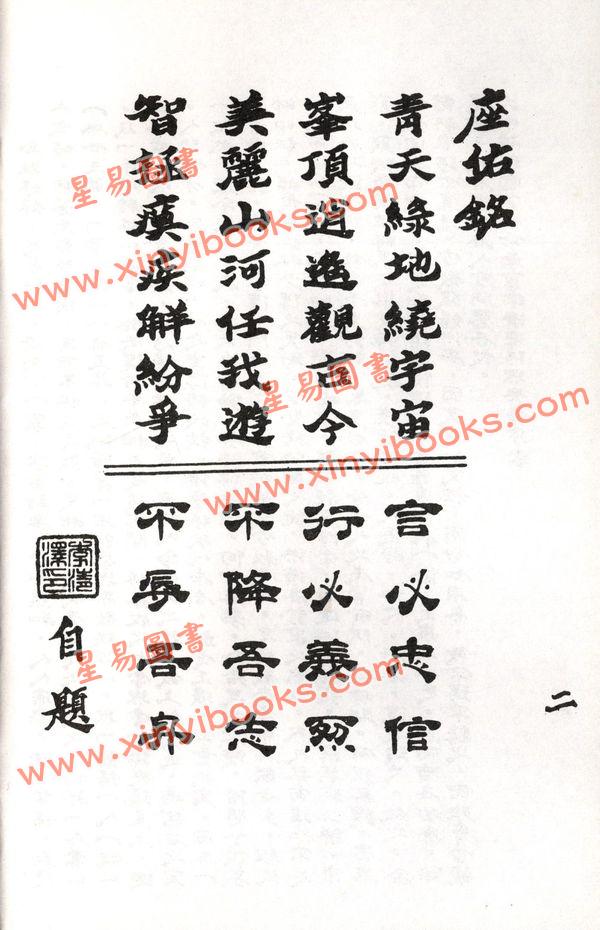 座佑銘
青天綠地繞宇宙
峯頂逍遙觀古今
美麗山河任我遊
智拯瘼疾觧紛爭
言必忠信
行必義烈
不降吾志
不辱吾身
李清澤印
自題
二
星易圖書
www.xinyibooks.com
星易圖書
www.xinyibooks.com
星易圖書
www.xinyibooks.com